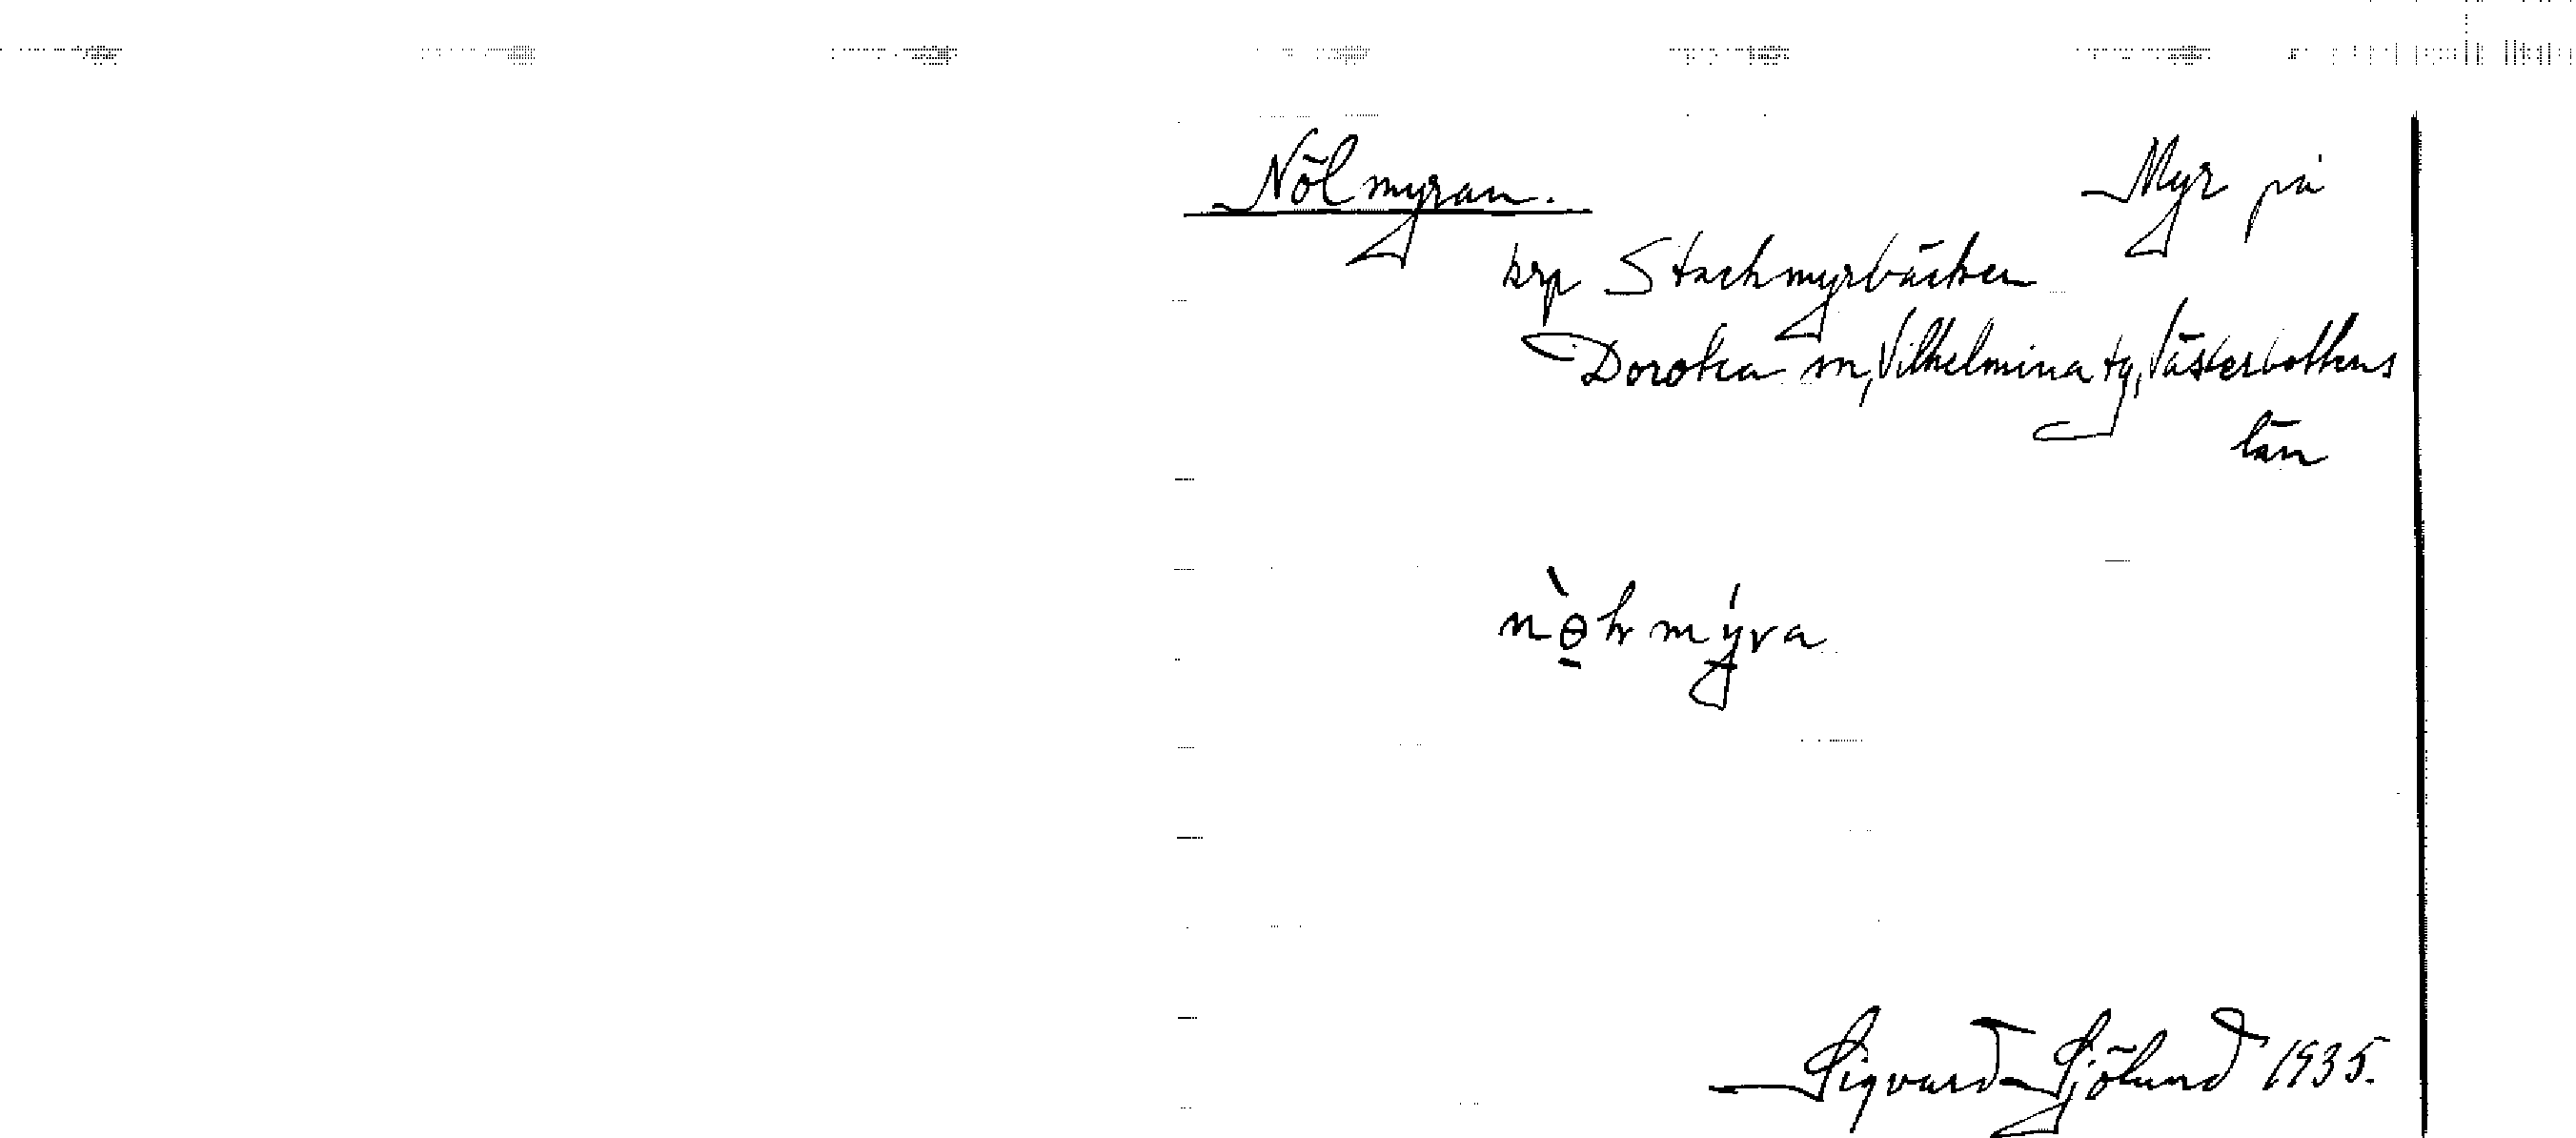 Nölmyran. Myr på
krp Stackmyrbäcken
Dorotea sn, Vilhelmina tg, Västerbottens
län
Sigvard Sjölund 1935.